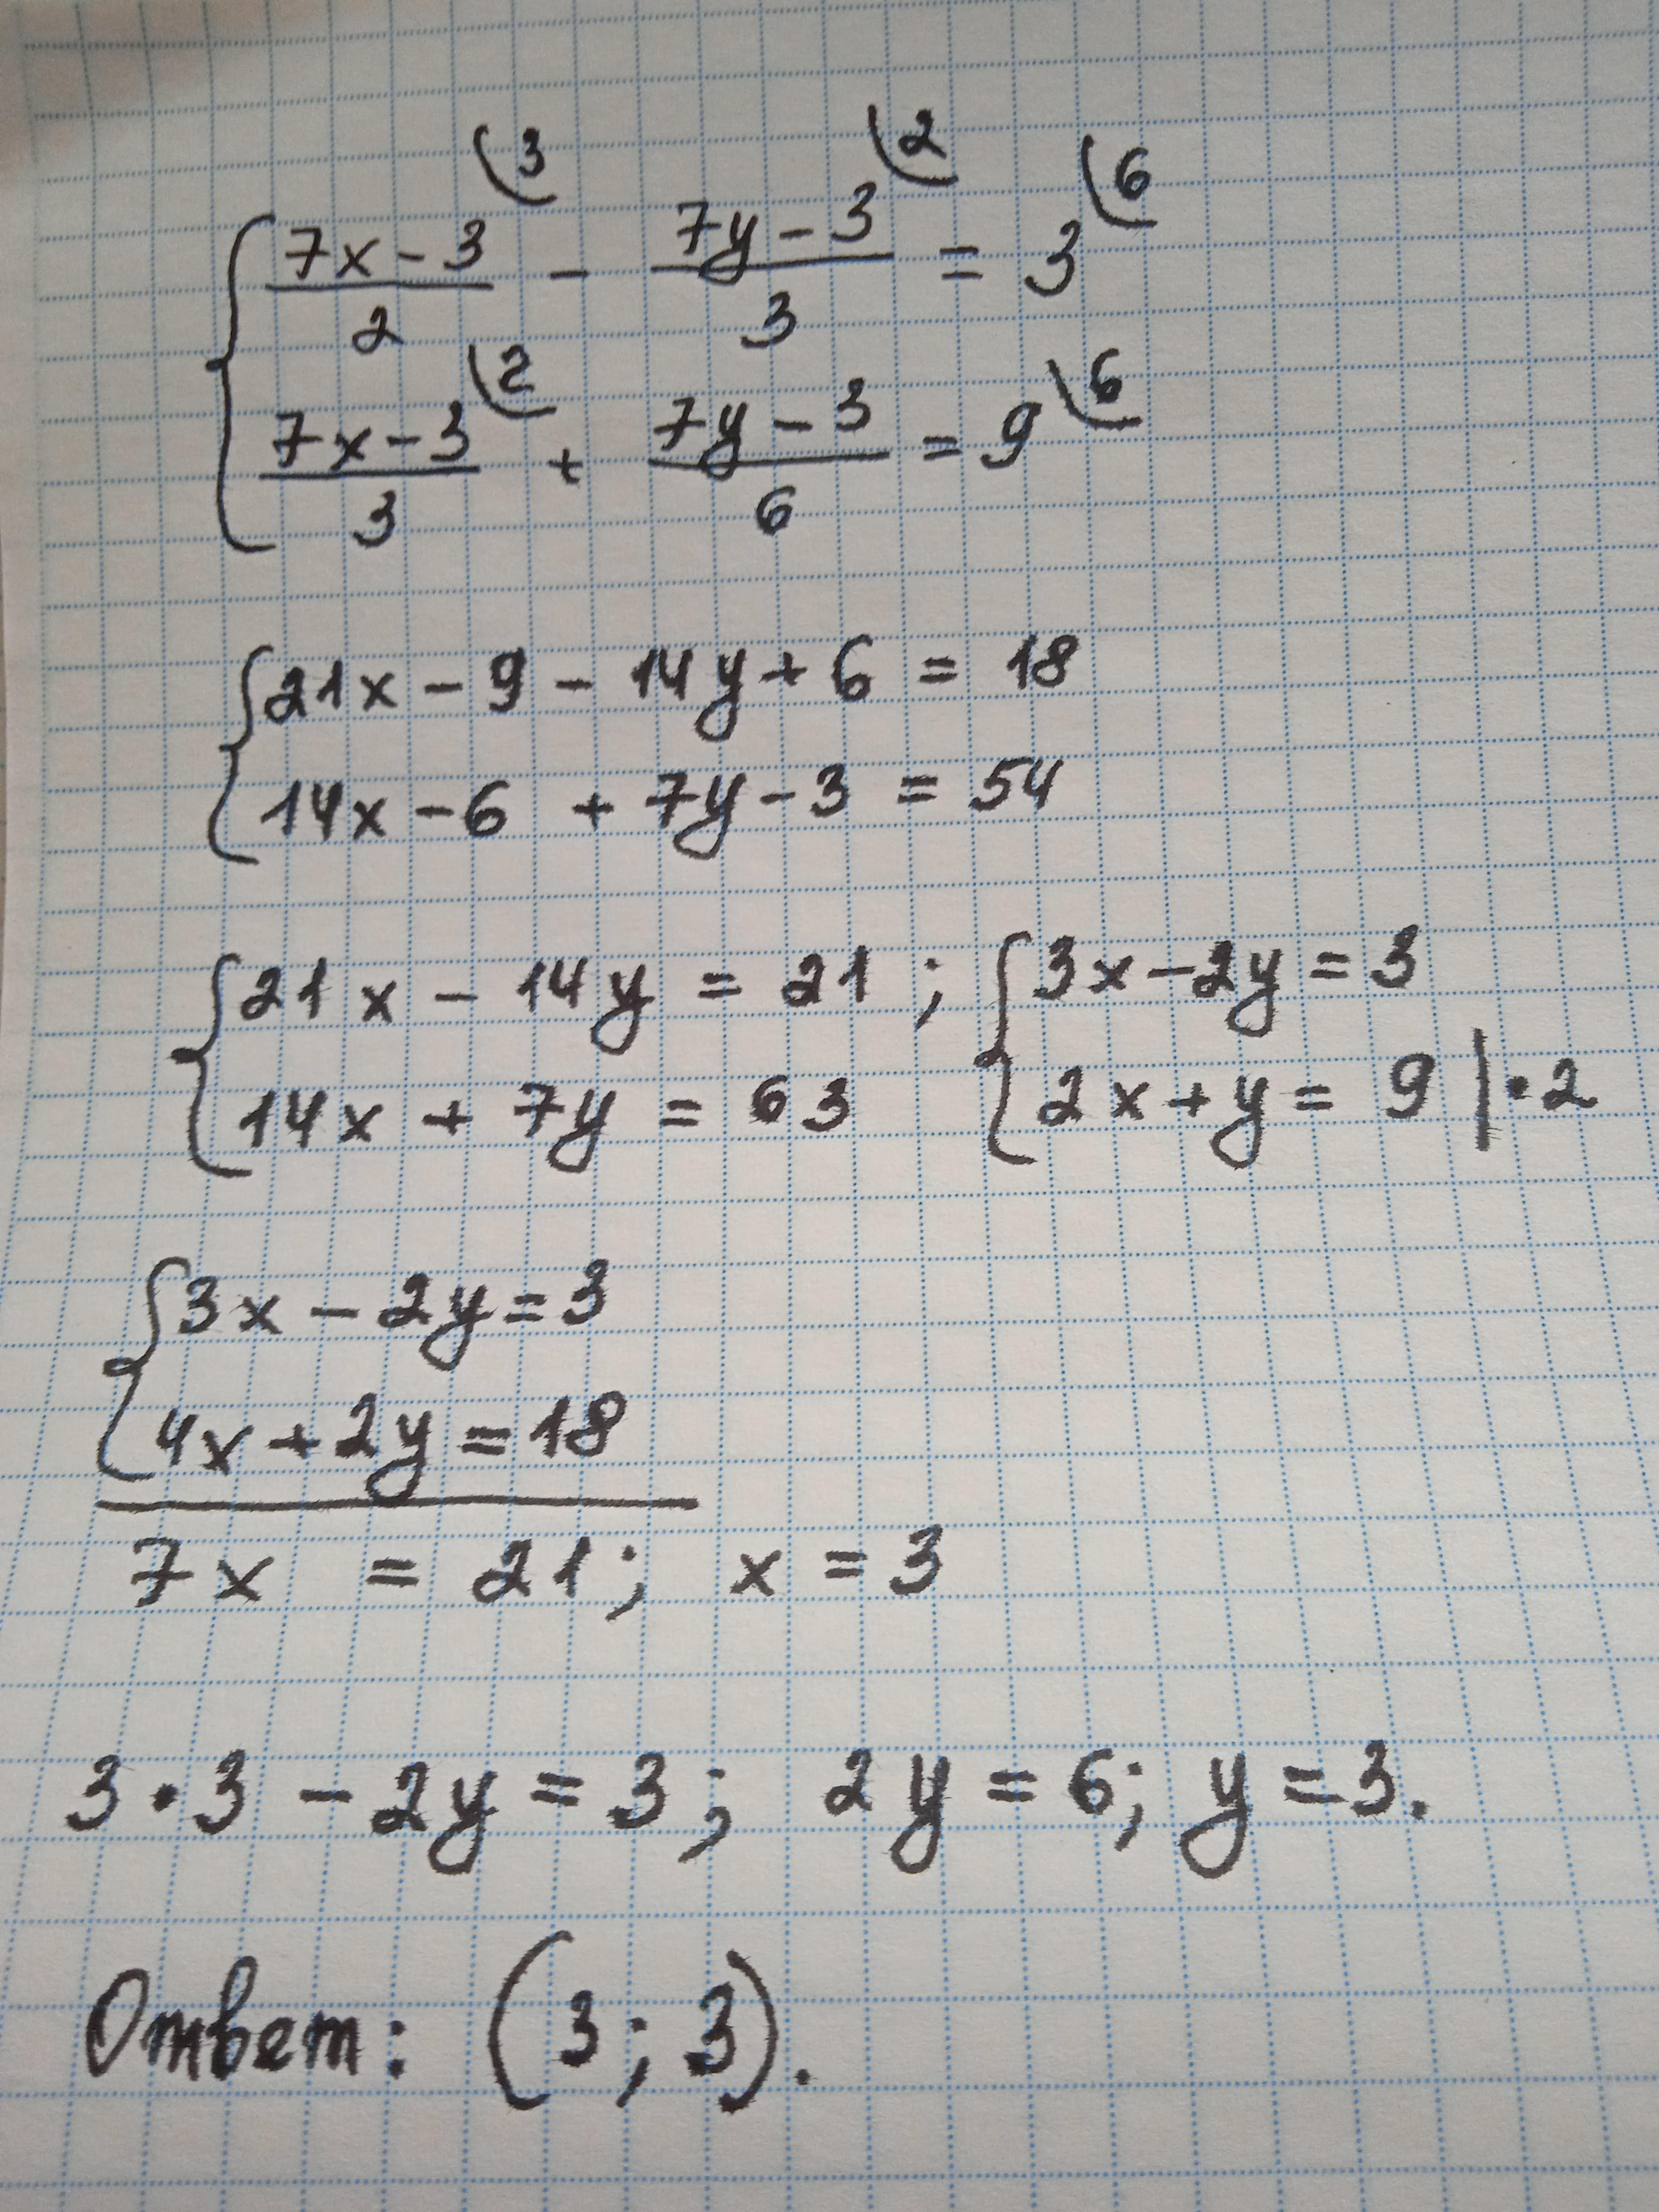 (7x-3)/2 \3 - (7y-3)/3 \2 = 3 \6
(7x-3)/3 \2 + (7y-3)/6 = 9 \6
21x - 9 - 14y + 6 = 18
14x - 6 + 7y - 3 = 54
21x - 14y = 21 ; 3x - 2y = 3
14x + 7y = 63 2x + y = 9 | • 2
3x - 2y = 3
4x + 2y = 18
7x = 21; x = 3
3 • 3 - 2y = 3; 2y = 6; y = 3.
Ответ: (3; 3).